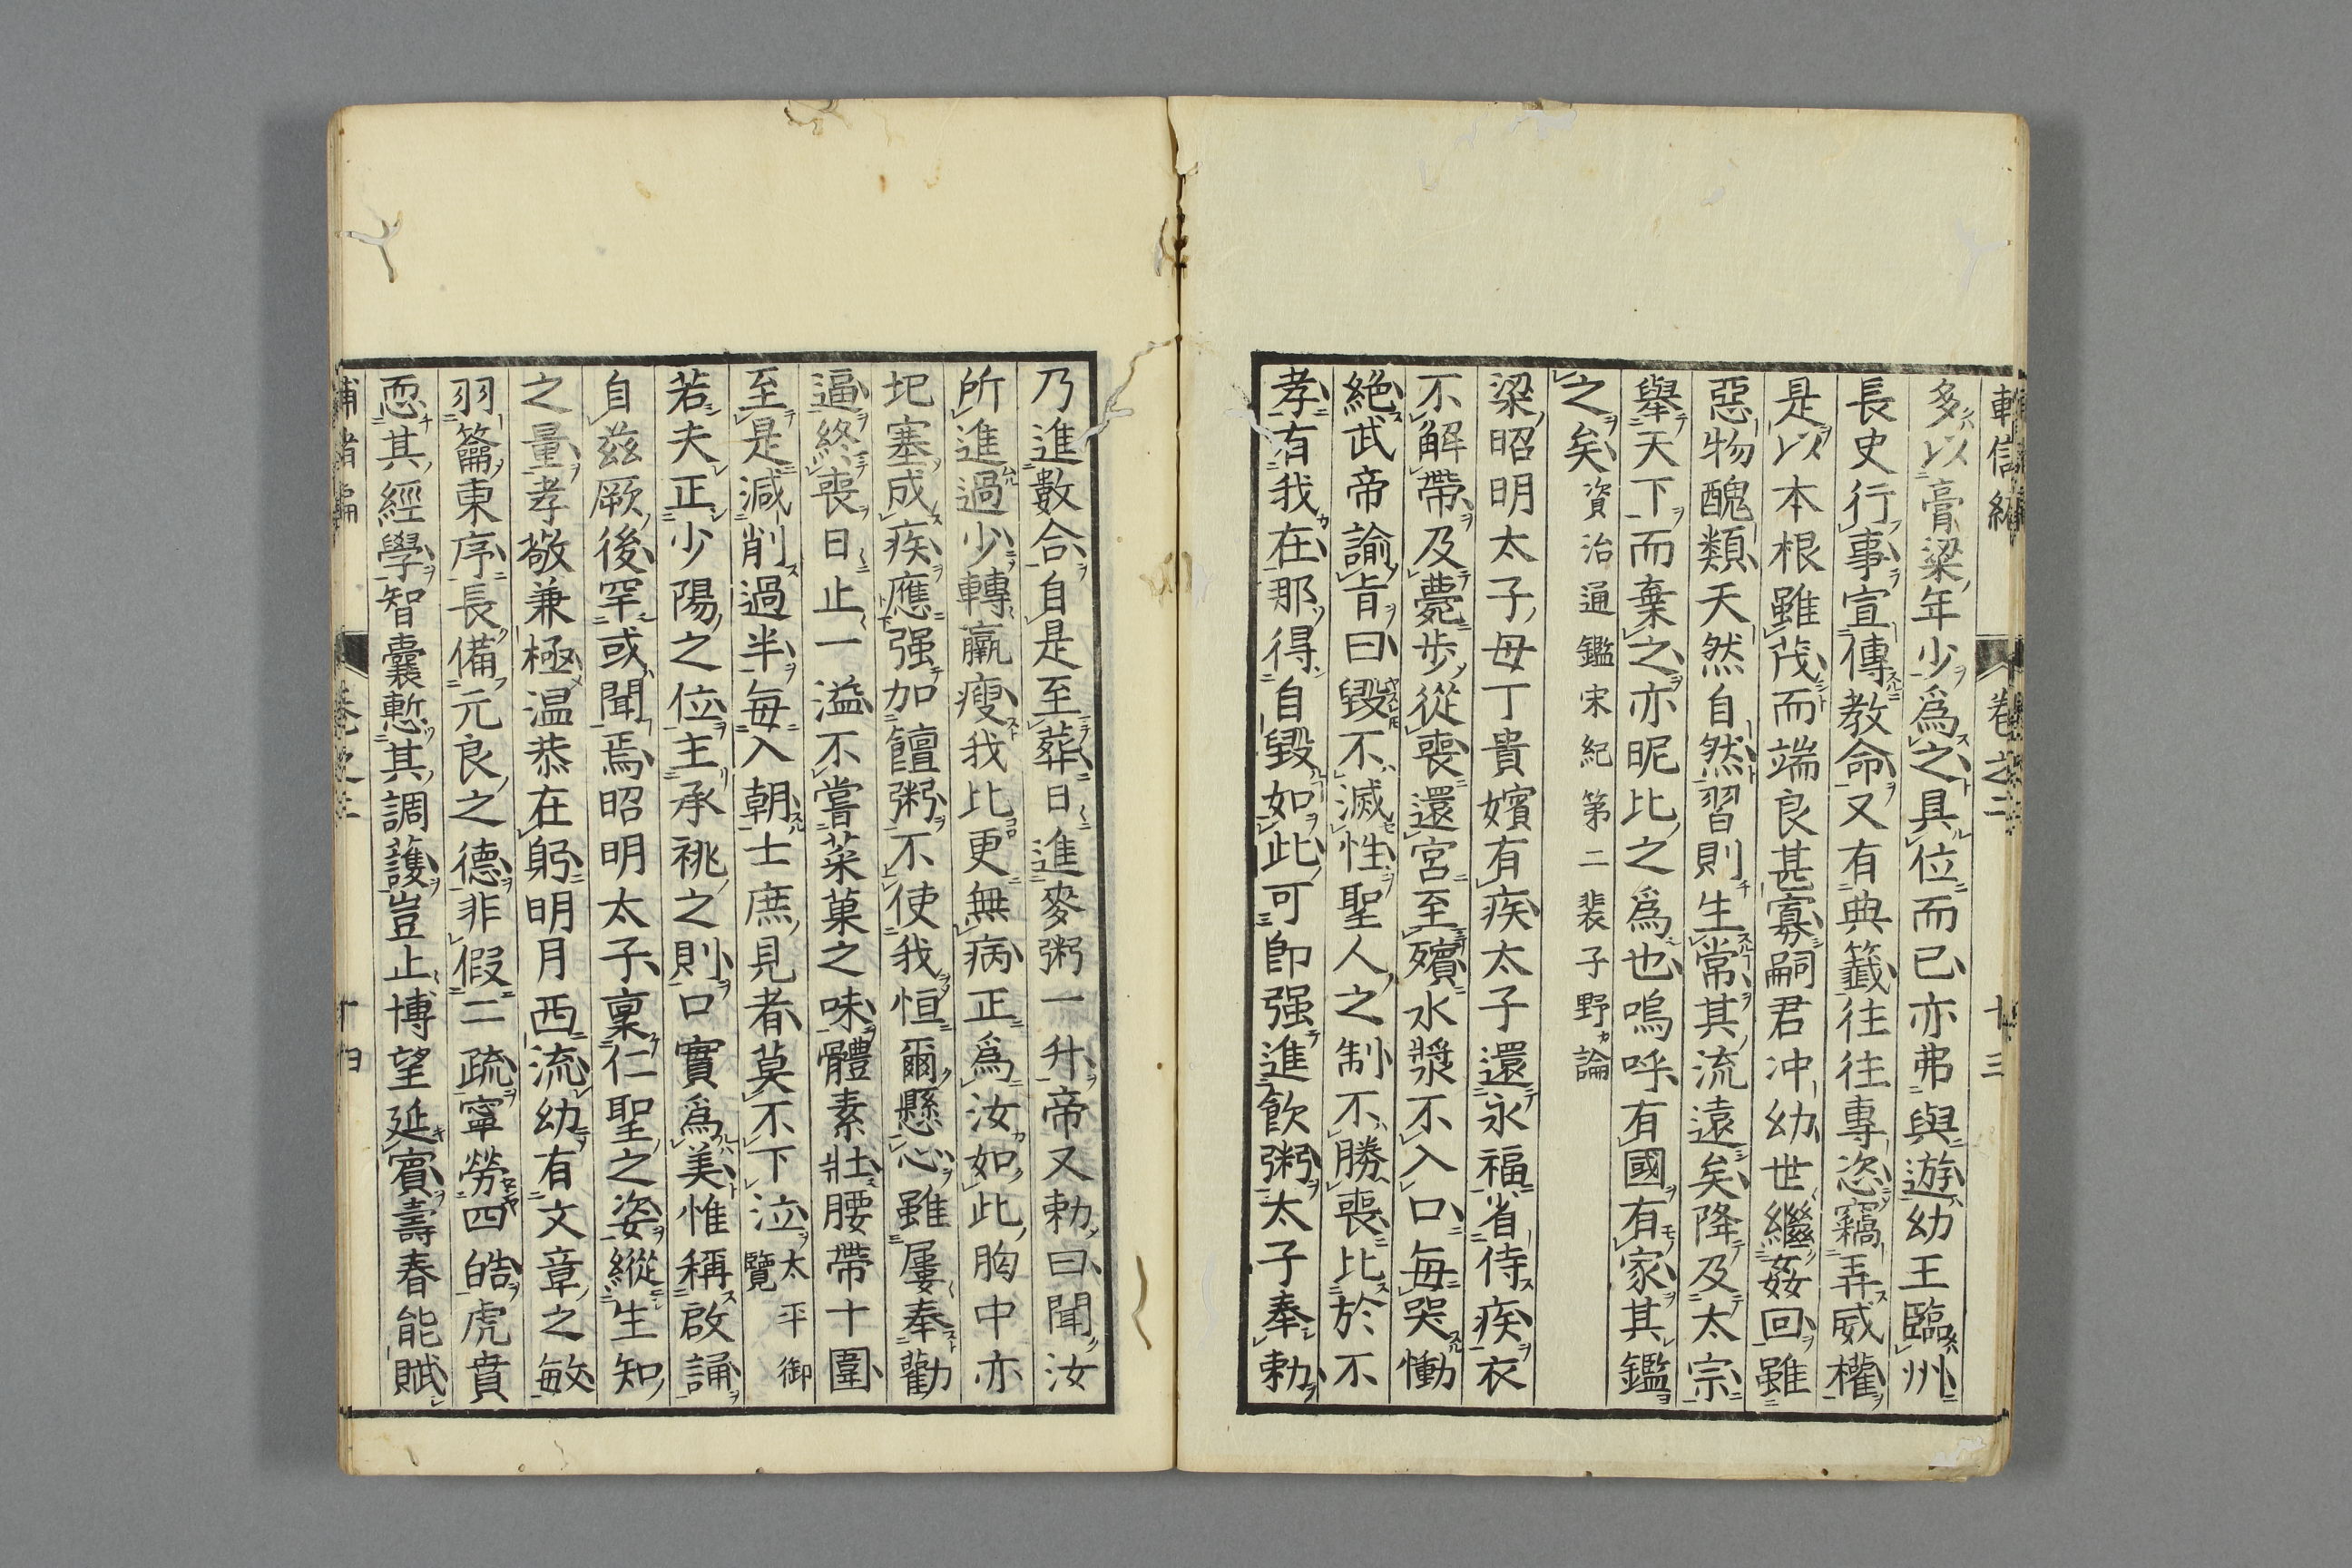 多以膏粱年少爲之具位而已亦弗與遊幼王臨州
長史行事宣傳教命又有典籤往往專恣竊弄威權
是以本根雖茂而端良甚寡嗣君冲幼世繼姦回雖
惡物醜類天然自然習則生常其流遠矣降及太宗
舉天下而棄之亦昵比之爲也嗚呼有國有家其鑑
之矣資治通鑑宋紀第二裴子野論
梁昭明太子母丁貴嬪有疾太子還永福省侍疾衣
不解帶及薨步從喪還宮至殯水漿不入口每哭慟
絶武帝諭旨曰毀不滅性聖人之制不勝喪比於不
孝有我在那得自毀如此可即强進飲粥太子奉勅
乃進數合自是至葬日進麥粥一升帝又勅曰聞汝
所進過少轉羸瘦我比更無病正爲汝如此胸中亦
圯塞成疾應强加饘粥不使我恒爾懸心雖屢奉勸
逼終喪日止一溢不嘗菜菓之味體素壯腰帶十圍
至是減削過半每入朝士庶見者莫不下泣太平御覽
若夫正少陽之位主承祧之則口實爲美惟稱啟誦
自兹厥後罕或聞焉昭明太子稟仁聖之姿縱生知
之量孝敬兼極温恭在躬明月西流幼有文章之敏
羽籥東序長備元良之德非假二疏寧勞四皓虎賁
恧其經學智囊慙其調護豈止博望延賓壽春能賦
卷之二 十四